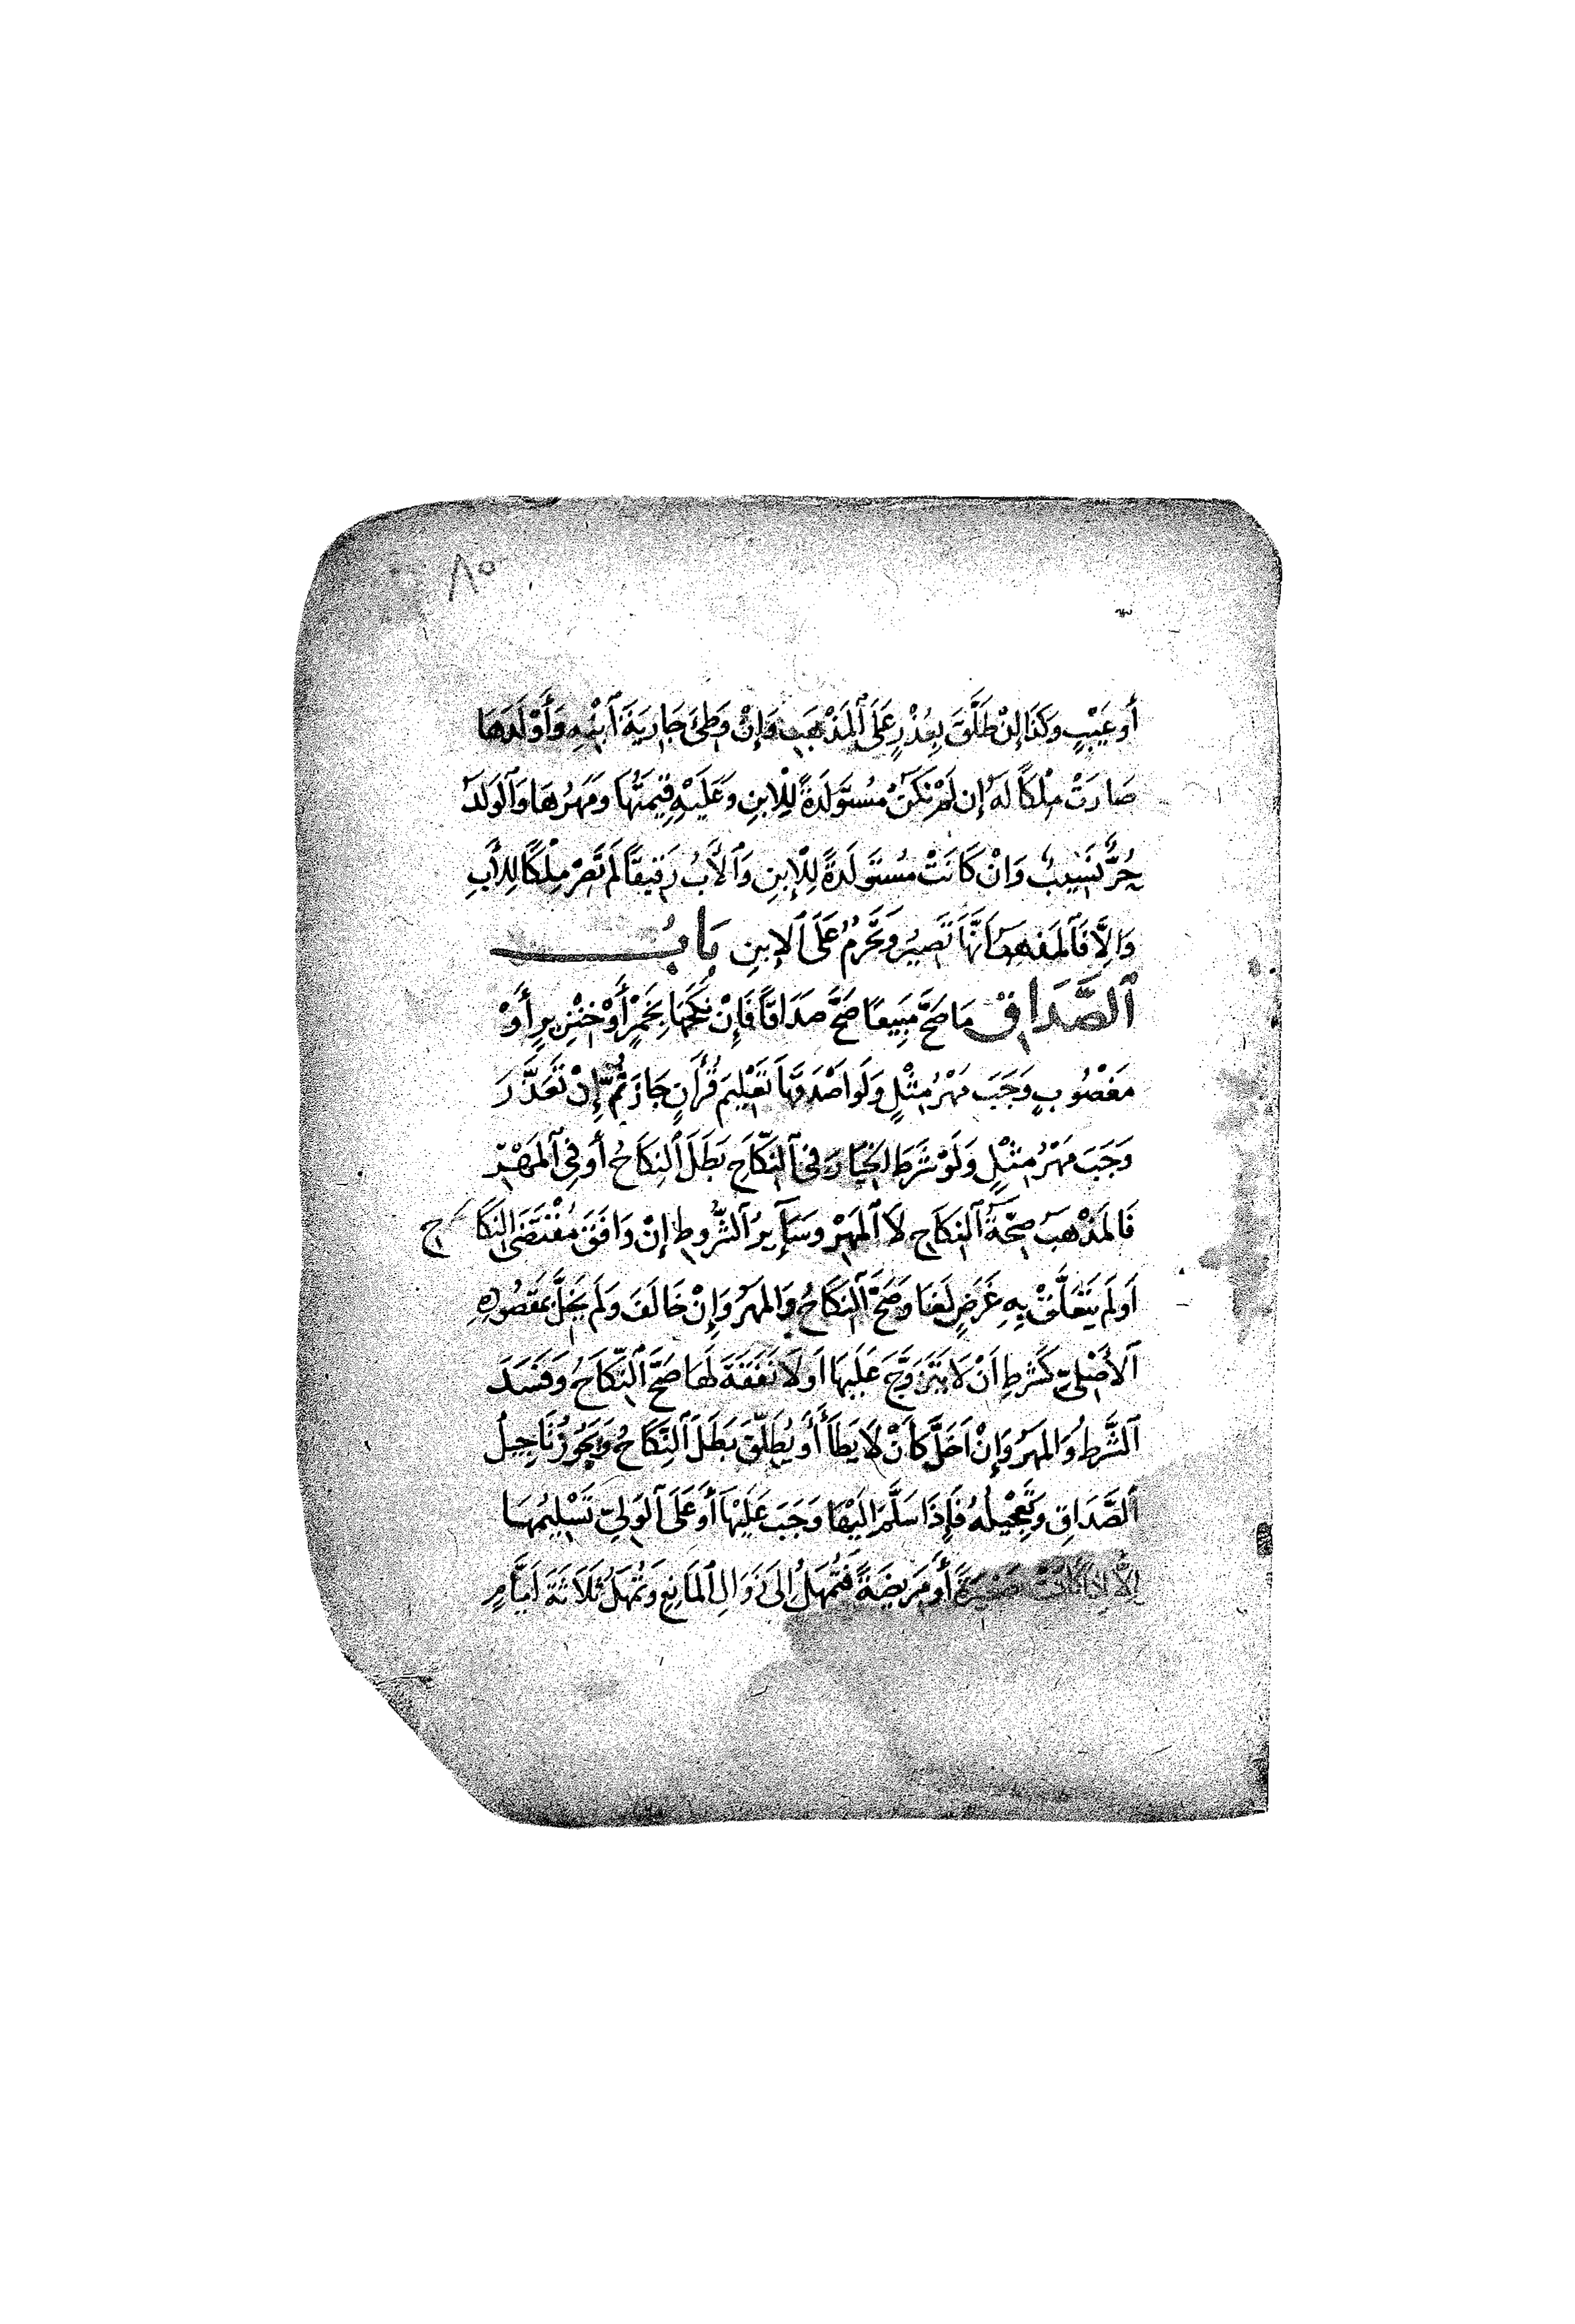 ٨٥
أَو عَيْبٍ وَكَذَا إِنْ طَلَّقَ بِعُذْرٍ عَلَى ٱلْمَذْهَبِ وَإِنْ وَطِئَ جَارِيَةَ ٱبْنِهِ وَأَوْلَدَهَا
صَارَتْ مِلْكًا لَهُ إِن لَمْ تَكُنْ مُسْتَوْلَدَةً لِلْاِبنِ وَعَلَيْهِ قِيمَتُهَا وَمَهْرُهَا وَٱلْوَلَدُ
حُرٌّ نَسِيبٌ وَانْ كَانَتْ مُسْتَوْلَدَةً لِلْإِبنِ وَٱلْأَبُ رَقِيقًا لَمْ تَصِرْ مِلْكًا لِلْأَبِ
وَاِلَّا فَٱلْمَذْهَبُ أَنَّهَا تَصِيرُ وَتَحْرُمُ عَلَى ٱلاِبنِ بَابُ
ٱلصَّدَاقِ مَا صَحَّ مَبِيعًا صَحَّ صَدَاقًا فَإِنْ نَكَحَهَا بِخَمْرٍ أَوْ خِنْزِيرٍ أَوْ
مَغْصُوبٍ وَجَبَ مَهْرُ مِثْلٍ وَلَو اصْدَقَهَا تَعْلِيمَ قُرْأَنٍ جَازَ ثُمَّ إِنْ تَعَذَّرَ
وَجَبَ مَهْرُ مِثْلٍ وَلَوْ شَرَطَ الخِيَارَ فِى ٱلنِّكَاحِ بَطَلَ ٱلنِكَاحُ أَو فِي ٱلْمَهْرِ
فَالْمَذْهَبُ صِحَّةُ ٱلنِكَاحِ لَا ٱلْمَهْرِ وَسَآئِرُ ٱلشُّرُوطِ إِنْ وَافَقَ مُقْتَضَى النِكَاحِ
اَو لَمْ يَتَعَلَّقْ بِهِ غَرَضٌ لَغَا وَصَحَّ ٱلنِكَاحُ وَالْمَهْرُ وَإِنْ خَالَفَ وَلَمْ يُخِلَّ بِمَقْصُودِهِ
ٱلْأَصْلِيِّ كَشَرْطِ اَنْ لَا يَتَزَوَّجَ عَلَيْهَا اَو لَا نَفَقَةَ لَهَا صَحَّ ٱلنِّكَاحُ وَفَسَدَ
ٱلشَّرْطُ وَالْمَهْرُ وَإِنْ اَخَلَّ كَأَنْ لَا يَطَأَ أَو يُطَلِّقَ بَطَلَ ٱلنِّكَاحُ وَيَجُوزُ تَاجِيلُ
ٱلصَّدَاقِ وَتَعْجِيلُهُ فَإِذَا سَلَّمَ اِلَيْهَا وَجَبَ عَلَيْهَا أَو عَلَى ٱلْوَلِيِّ تَسْلِيمُهَا
إِلَّا إِذَا كَانَتْ صَغِيرَةً أَو مَرِيضَةً فَتُمْهَلُ إِلَى زَوَالِ ٱلْمَانِعِ وَتُمْهَلُ ثَلَاثَةَ اَيَّامٍ